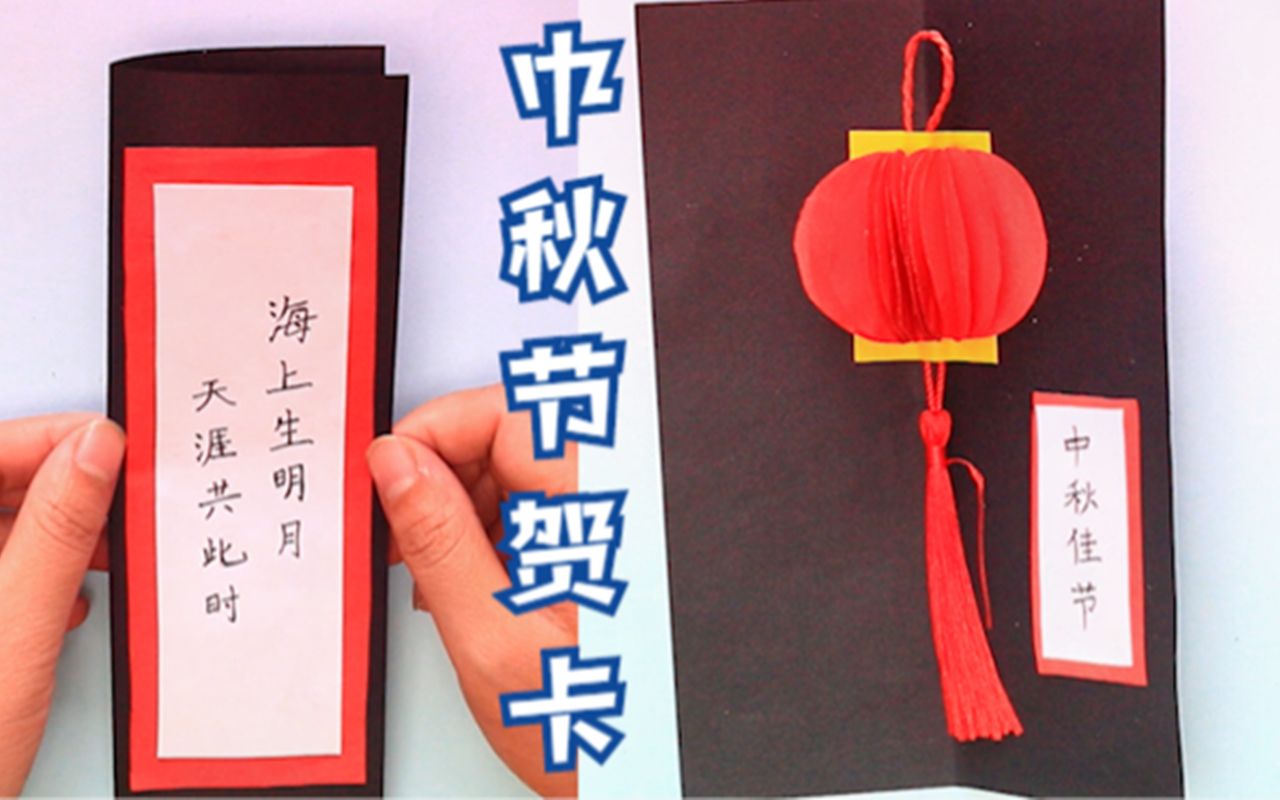 海上生明月
天涯共此时
中秋节贺卡
中秋佳节